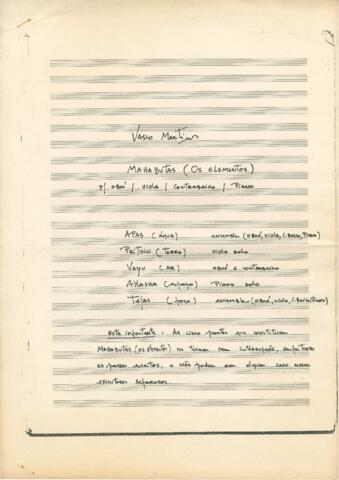 Vasco Martins
MAHABUTAS (OS ELEMENTOS)
P/ OBOÉ / VIOLA / CONTRABAIXO / PIANO
APAS (ÁGUA) ensemble (OBOÉ, VIOLA, C. BAIXO, PIANO)
PRITHIVI (TERRA) VIOLA SOLO
VAYU (AR) OBOÉ E CONTRABAIXO
AKASHA (espaço) PIANO SOLO
TEJAS (fogo) ensemble (OBOÉ, VIOLA, C. BAIXO, PIANO)
Nota importante: As cinco partes que constituem
MAHABUTAS (OS ELEMENTOS) se tocam sem interrupção,
as pausas escritas, e não podem em algum caso